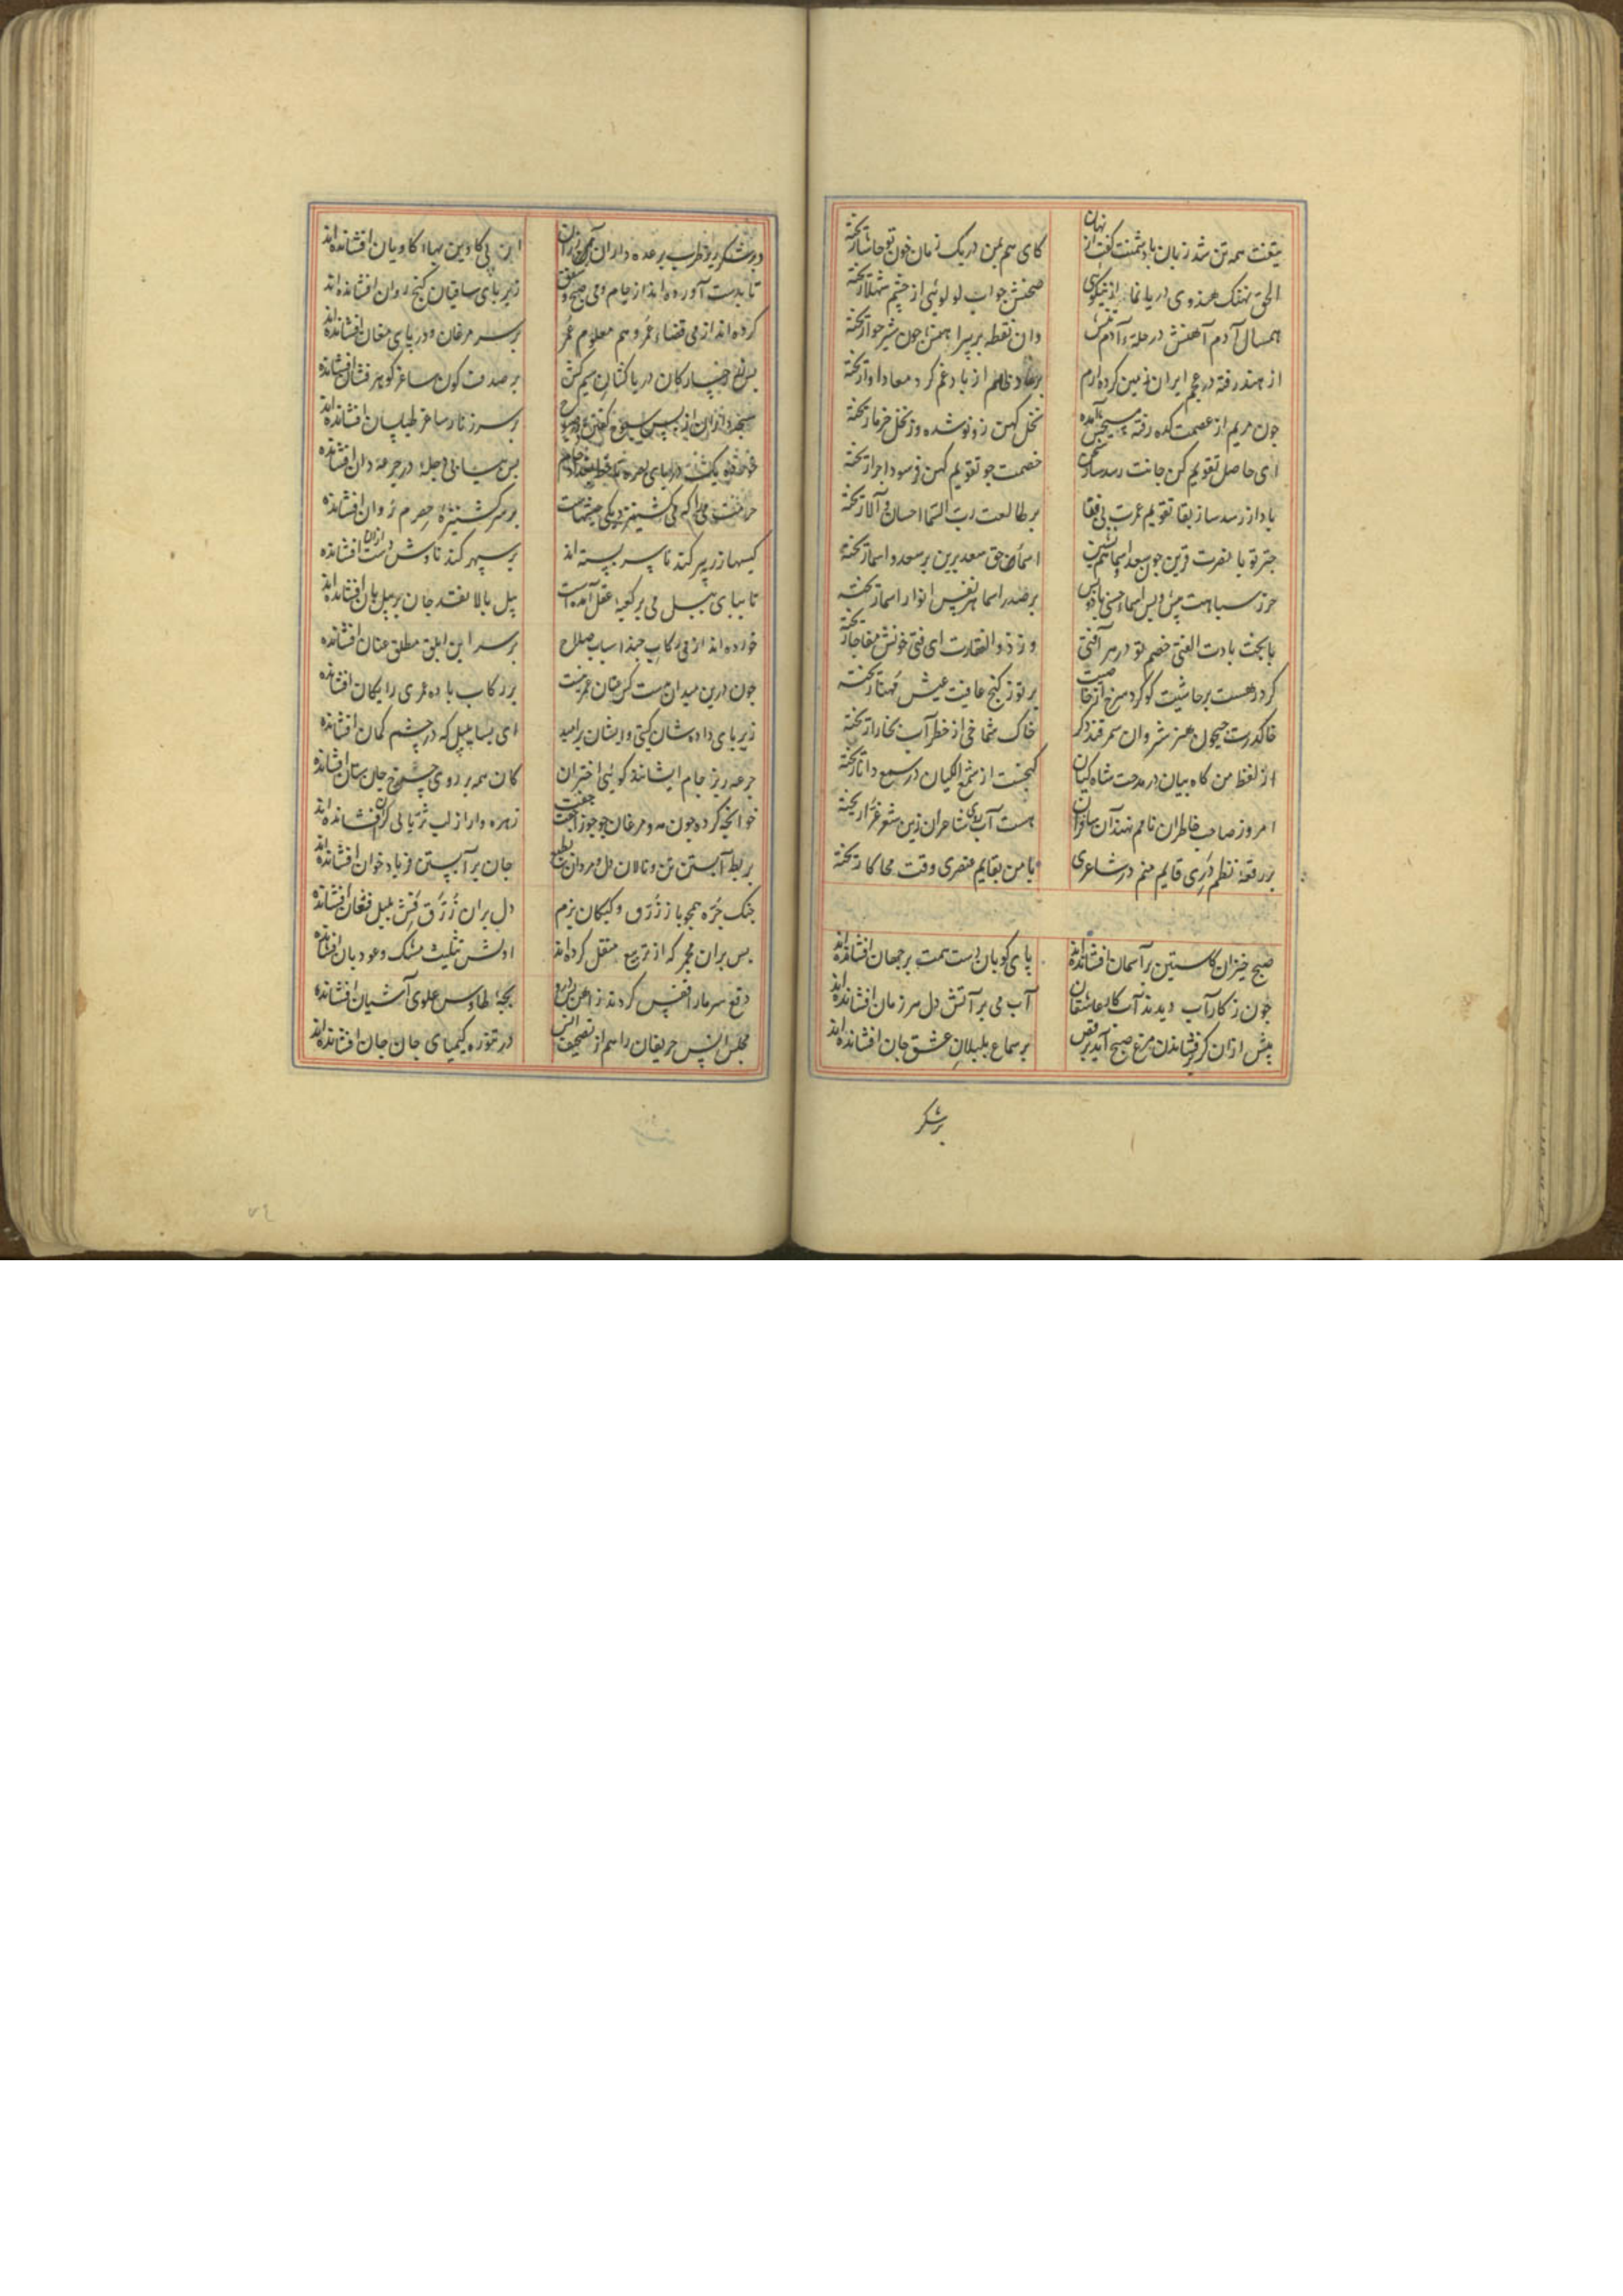 تیغت همه تن شد زبان با دشمنت گفت از نهان کای هم بمن در یک زمان خون تو حاشا ریخته
الحق نهنگ هندوی دریا نما از نیکوی صحنش جواب لولوئی از چشم شهلا ریخته
همسال آدم آهنش در حله آدم تنش وان نقطه بر پیراهنش چون شیر حوا ریخته
از هند رفته در عجم ایران زمین کرده ارم بر عاد ظلم از باد غم گرد معادا ریخته
چون مریم از عصمت کده رفته مسیحش آمده نخل کهن زو نو شده وز نخل خرما ریخته
ای حاصل تقویم کن جانت رسد سازد خصمت چو تقویم کهن فرسوده اجزا ریخته
بادا ز رسد ساز بقا تقویم عمرت بی فقا بر طالعت رب السما احسان و آلا ریخته
چتر تو با نصرت قرین چون سعد اسما هم نشین اسمای حق سعد برین بر سعد و اسما ریخته
حرز سپاهت پیش و پس اسماء حسنی باد و بس بر صدر اسما هر نفس انوار اسما ریخته
با بخت بادت الفتی خصم تو در هر آفتی وز ذوالفقارت ای فتی خونش مفاجا ریخته
گردد هست بر حاشیت گوگرد سرخ از خاصیت بر تو ز گنج عافیت عیش مهنا ریخته
خاک درت جیحون هنر شروان سمرقند دگر خاک شماخی از خطر آب بخارا ریخته
از لفظ من گاه بیان در مدحت شاه کیان گنجیست از سمع الکیان در سمع دانا ریخته
امروز صاحب خاطران نامم نهند آن ساحران هست آب روی شاعران زین شعر غرا ریخته
بر رقعه نظم دری قایم منم در شاعری با من بقایم عنصری وقت محاکا ریخته
صبح خیزان کاستین بر آسمان افشانده اند پای کوبان دست همت بر جهان افشانده اند
چون ز کار آب دیدند آب کار عاشقان آب می بر آتش دل هر زمان افشانده اند
پیش از آن کز پر فشاندن مرغ صبح آید برقص بر سماع بلبلان عشق جان افشانده اند
بر شکر
در شکر ریز طرب بر عده داران این پی کاوین بهاء کاویان افشانده اند
تا بدست آورده اند از جام و می صبح و شفق زیر پای ساقیان گنج روان افشانده اند
کرده اند از می قضاء عمر و هم معلوم عمر بر سر مرغان و در پای مغان افشانده اند
بس زر رخسار کان دریا کشان سیم کش بر صدف گون ساغر گوهر فشان افشانده
بر سر زنار ساغر طیلسان افشانده اند
بس پیاپی دجله در جرعه دان افشانده
بر سر گشنیزه حصرم روان افشانده
کیسها زر بر کند تا سر بسته اند بر سپهر گند ناوش دست از آن افشانده
تا بپای پیل می بر کعبه عقل آمدست پیل بالا نقد جان بر پیلبان افشانده اند
خورده اند از می رکابی چند اسباب صلاح بر سر این ابلق مطلق عنان افشانده
چون درین میدان بدست کس عنان عمر نیست بر رکاب باده عمری رایگان افشانده
زیر پای داده شان گیتی و ایشان بر امید ای بسا پیل که در چشم گمان افشانده
جرعه ریز جام ایشانند گوئی اختران کان همه بر روی چرخ جان ستان افشانده
خوانچه کرده چون مه و مرغان چو جوزا جفت جفت زهره وار از لب ثریا بی کران افشانده اند
بربط آبستن تن و نالان دل و مردان بطبع جان بر آبستن فریاد خوان افشانده اند
چنگ جره همچو باز زرق و کبکان بزم دل بران زرق فش بلبل فغان افشانده
بس بران مجمر که از تربیع منقل کرده اند اولش تثلیث مشک و عود و بان افشانده
بچه طاوس علوی آشیان افشانده
مجلس انس حریفان را هم از تصحیف انس در تنوره کیمیای جان جان افشانده اند